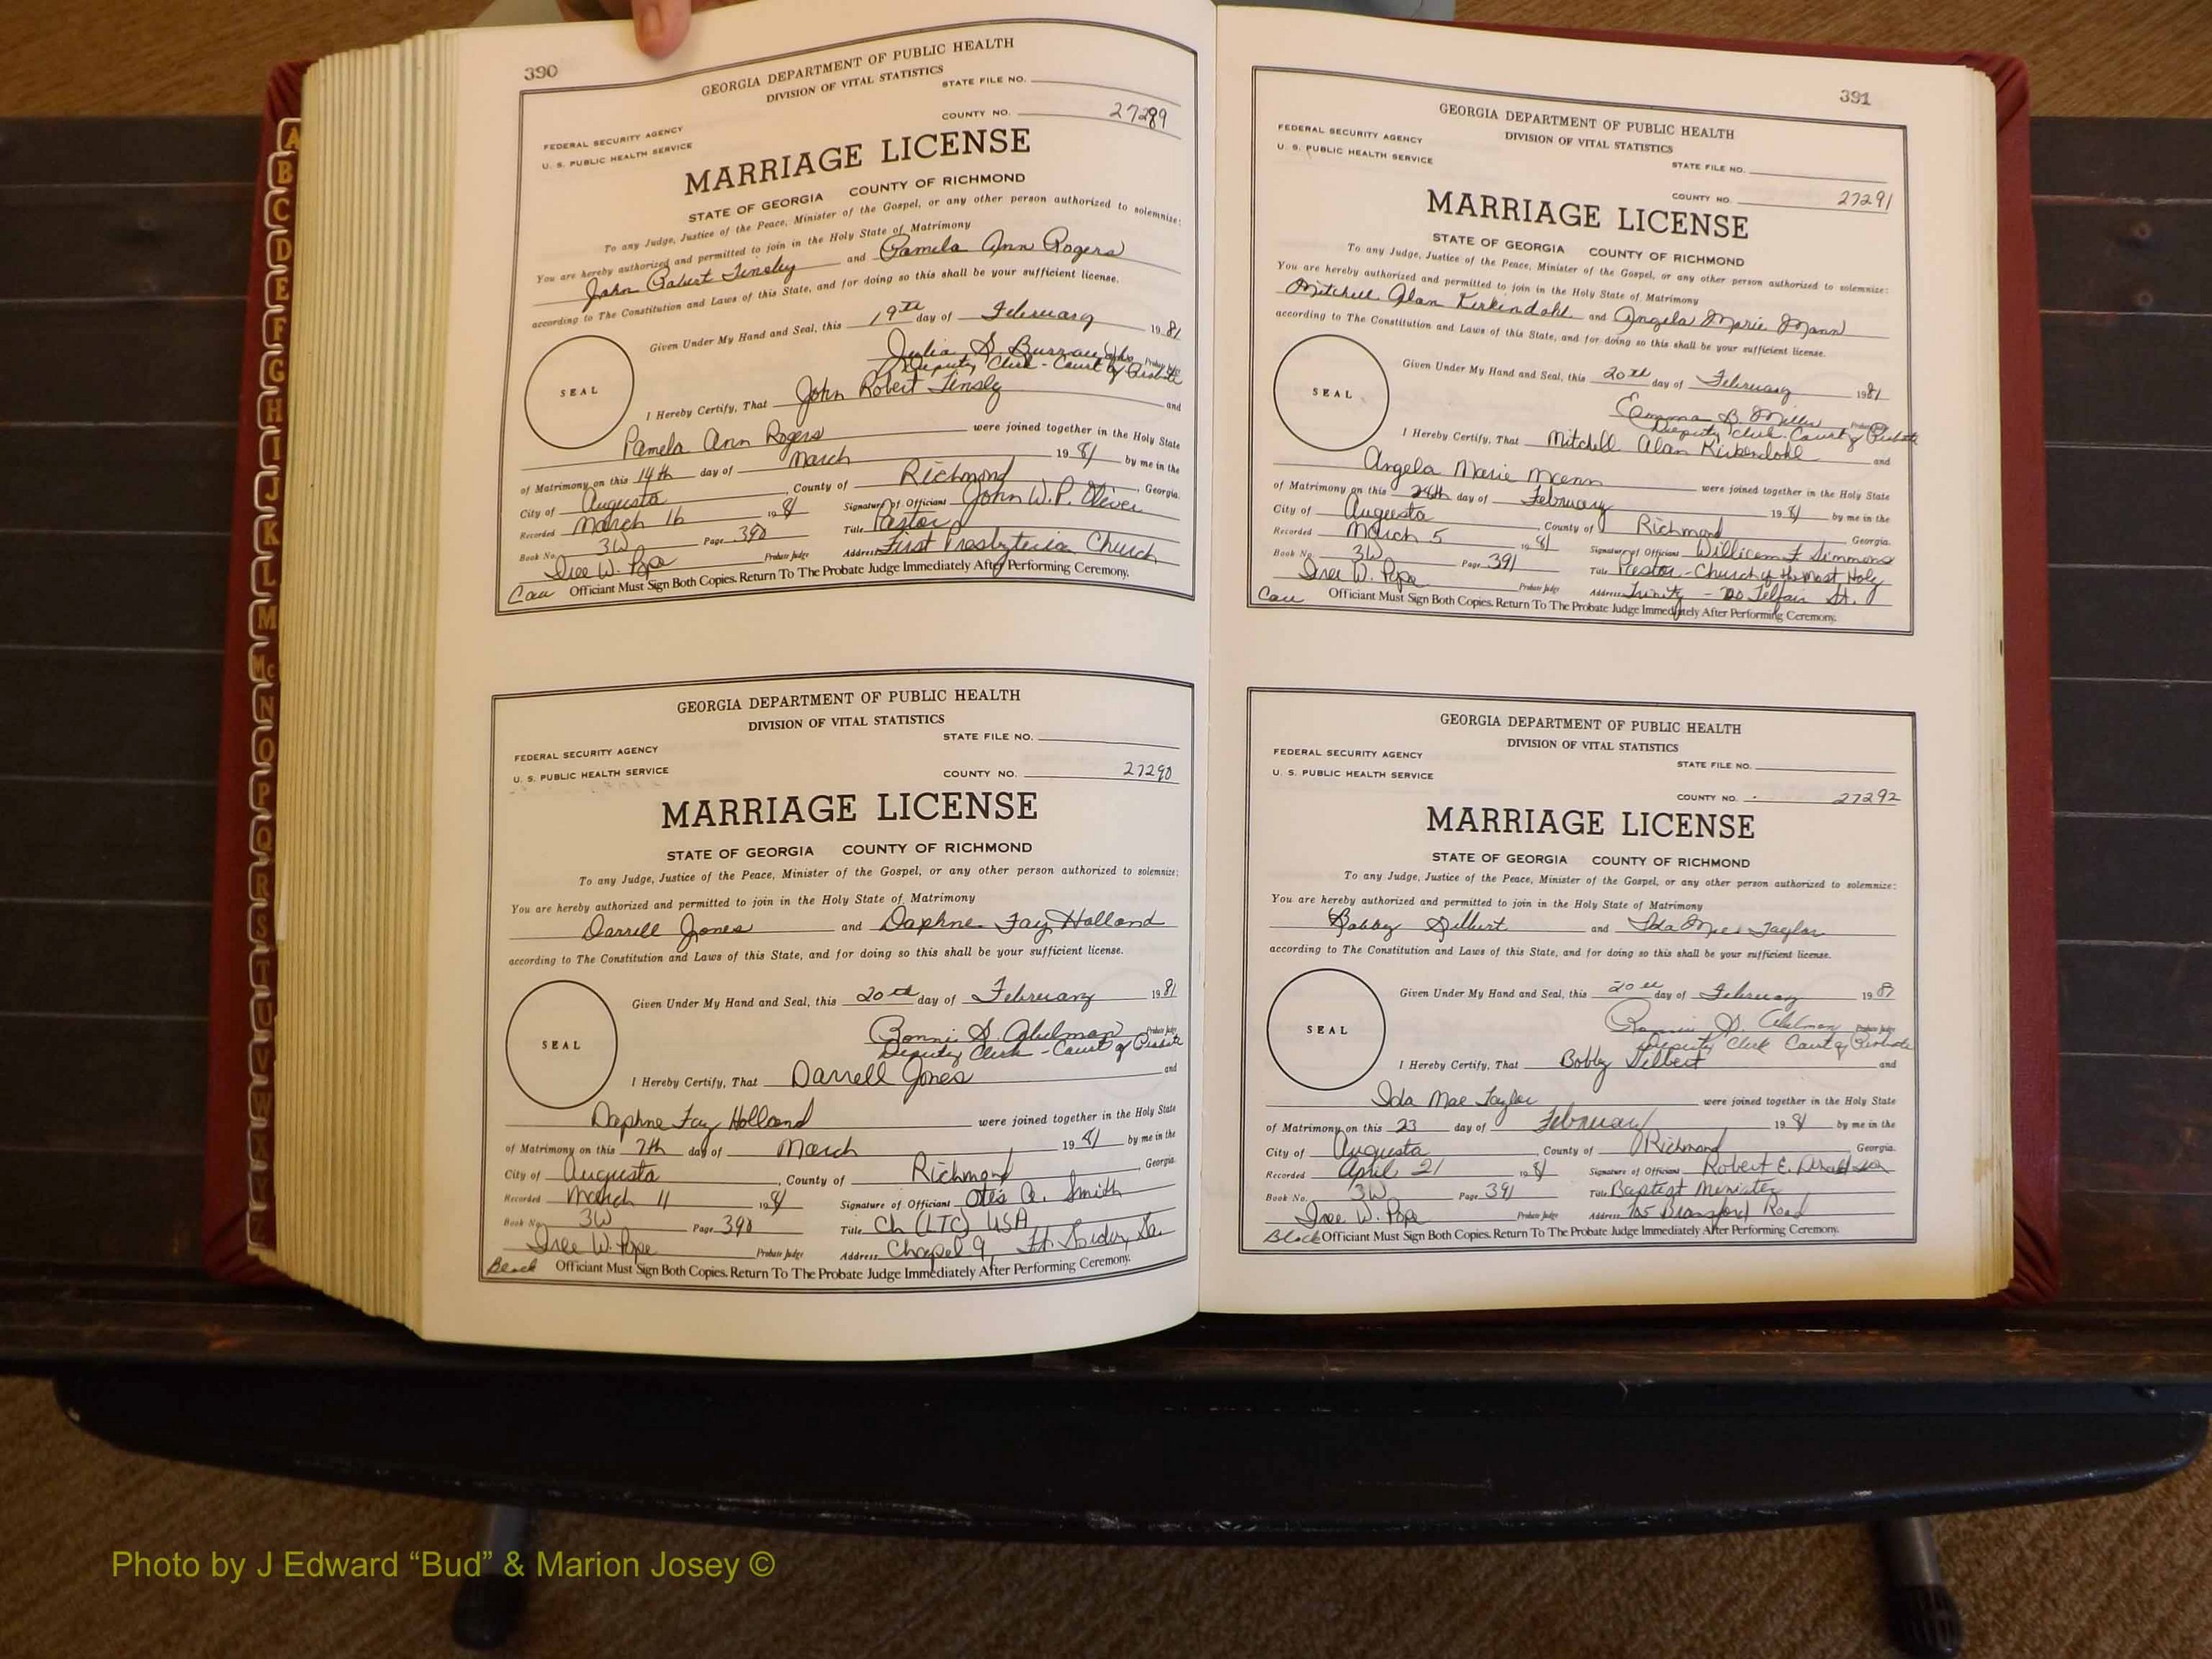 390
GEORGIA DEPARTMENT OF PUBLIC HEALTH
DIVISION OF VITAL STATISTICS
STATE FILE NO.
COUNTY NO. 27289
FEDERAL SECURITY AGENCY
U. S. PUBLIC HEALTH SERVICE
MARRIAGE LICENSE
STATE OF GEORGIA COUNTY OF RICHMOND
To any Judge, Justice of the Peace, Minister of the Gospel, or any other person authorized to solemnize:
You are hereby authorized and permitted to join in the Holy State of Matrimony
John Robert Tinsley and Pamela Ann Rogers
according to The Constitution and Laws of this State, and for doing so this shall be your sufficient license.
Given Under My Hand and Seal, this 19th day of February 1981
Julia S. Probate Judge
Deputy Clerk - Court of Probate
SEAL
I Hereby Certify, That John Robert Tinsley and
Pamela Ann Rogers were joined together in the Holy State
of Matrimony on this 14th day of March 1981 by me in the
City of Augusta, County of Richmond, Georgia.
Recorded March 16 1981 Signature of Officiant John W.P. Oliver
Book No. 3W Page 390 Title Pastor
Iree W. Pope Probate Judge Address First Presbyterian Church
Cau Officiant Must Sign Both Copies. Return To The Probate Judge Immediately After Performing Ceremony.
GEORGIA DEPARTMENT OF PUBLIC HEALTH
DIVISION OF VITAL STATISTICS
STATE FILE NO.
FEDERAL SECURITY AGENCY
U. S. PUBLIC HEALTH SERVICE
COUNTY NO. 27290
MARRIAGE LICENSE
STATE OF GEORGIA COUNTY OF RICHMOND
To any Judge, Justice of the Peace, Minister of the Gospel, or any other person authorized to solemnize:
You are hereby authorized and permitted to join in the Holy State of Matrimony
Darrell Jones and Daphne Fay Holland
according to The Constitution and Laws of this State, and for doing so this shall be your sufficient license.
Given Under My Hand and Seal, this 20th day of February 1981
Bonnie S. Adelman Probate Judge
Deputy Clerk - Court of Probate
SEAL
I Hereby Certify, That Darrell Jones and
Daphne Fay Holland were joined together in the Holy State
of Matrimony on this 7th day of March 1981 by me in the
City of Augusta, County of Richmond, Georgia.
Recorded March 11 1981 Signature of Officiant Otis Smith
Book No. 3W Page 390 Title Ch (LTC) USA
Iree W. Pope Probate Judge Address Chapel 9, Ft. Gordon, Ga.
Black Officiant Must Sign Both Copies. Return To The Probate Judge Immediately After Performing Ceremony.
391
GEORGIA DEPARTMENT OF PUBLIC HEALTH
DIVISION OF VITAL STATISTICS
FEDERAL SECURITY AGENCY
U. S. PUBLIC HEALTH SERVICE
STATE FILE NO.
COUNTY NO. 27291
MARRIAGE LICENSE
STATE OF GEORGIA COUNTY OF RICHMOND
To any Judge, Justice of the Peace, Minister of the Gospel, or any other person authorized to solemnize:
You are hereby authorized and permitted to join in the Holy State of Matrimony
Mitchell Alan Kirkendohl and Angela Marie Mann
according to The Constitution and Laws of this State, and for doing so this shall be your sufficient license.
Given Under My Hand and Seal, this 20th day of February 1981
Emma B. Miller Probate Judge
Deputy Clerk. Court of Probate
SEAL
I Hereby Certify, That Mitchell Alan Kirkendohl and
Angela Marie Mann were joined together in the Holy State
of Matrimony on this 28th day of February 1981 by me in the
City of Augusta, County of Richmond Georgia.
Recorded March 5 1981 Signature of Officiant William F. Simmons
Book No. 3W Page 391 Title Pastor - Church of the Most Holy
Iree W. Pope Probate Judge Address Trinity - 720 Telfair St.
Cau Officiant Must Sign Both Copies. Return To The Probate Judge Immediately After Performing Ceremony.
GEORGIA DEPARTMENT OF PUBLIC HEALTH
DIVISION OF VITAL STATISTICS
FEDERAL SECURITY AGENCY
U. S. PUBLIC HEALTH SERVICE
STATE FILE NO.
COUNTY NO. 27292
MARRIAGE LICENSE
STATE OF GEORGIA COUNTY OF RICHMOND
To any Judge, Justice of the Peace, Minister of the Gospel, or any other person authorized to solemnize:
You are hereby authorized and permitted to join in the Holy State of Matrimony
Bobby Gilbert and Ida Mae Taylor
according to The Constitution and Laws of this State, and for doing so this shall be your sufficient license.
Given Under My Hand and Seal, this 20th day of February 1981
Bonnie S. Adelman Probate Judge
Deputy Clerk Court of Probate
SEAL
I Hereby Certify, That Bobby Gilbert and
Ida Mae Taylor were joined together in the Holy State
of Matrimony on this 23 day of February 1981 by me in the
City of Augusta, County of Richmond Georgia.
Recorded April 21 1981 Signature of Officiant Robert E. Donaldson
Book No. 3W Page 391 Title Baptist Minister
Iree W. Pope Probate Judge Address Road
Black Officiant Must Sign Both Copies. Return To The Probate Judge Immediately After Performing Ceremony.
A
B
C
D
E
F
G
H
I
J
K
L
M
Mc
N
O
P
Q
R
S
T
U
V
W
Photo by J Edward “Bud” & Marion Josey ©